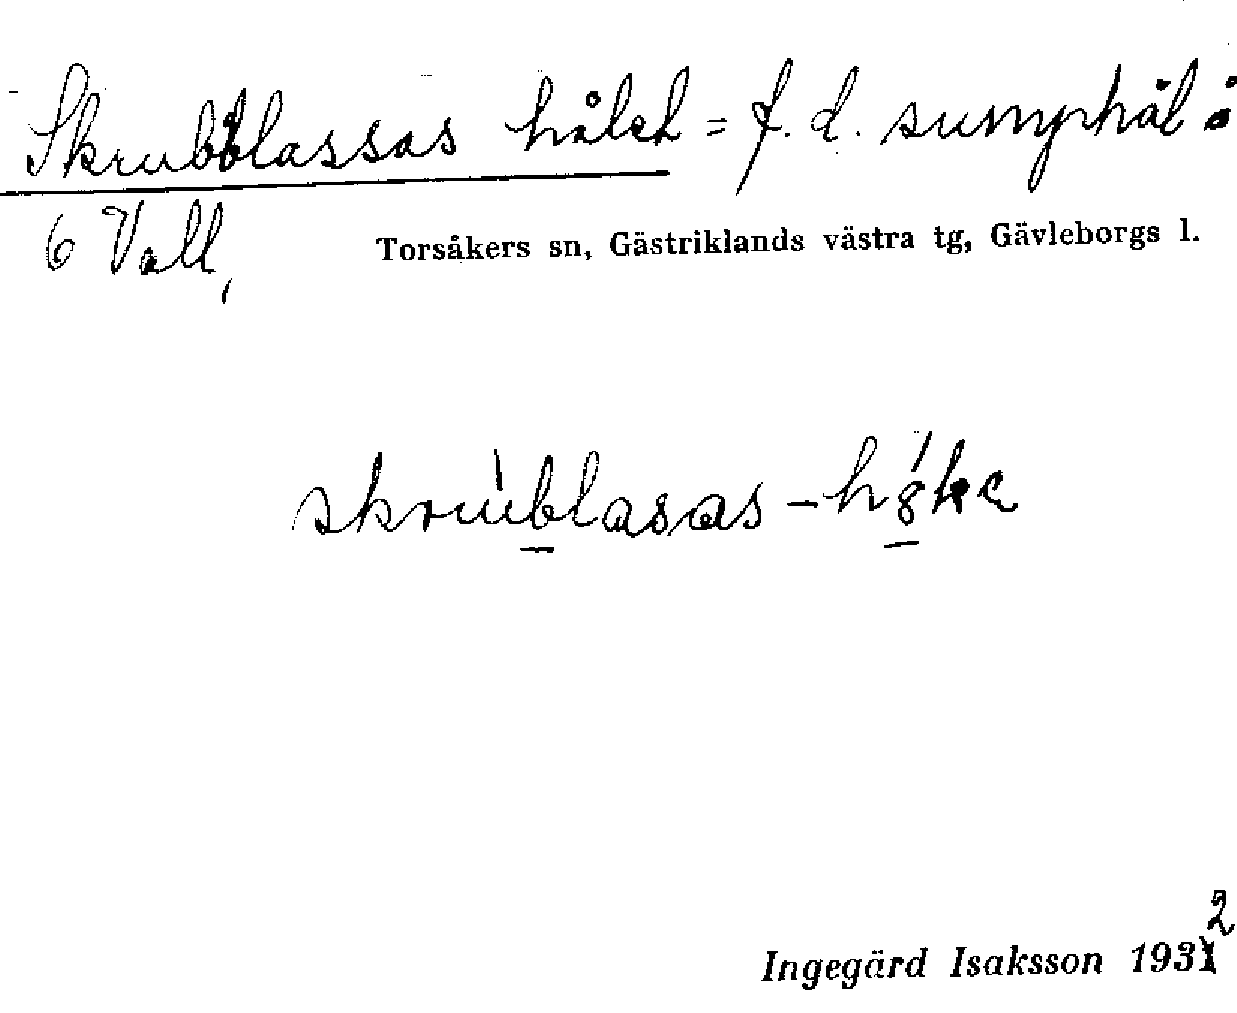 Skrubblassas hålet = f. d. sumphål å
6 Vall,
Torsåkers sn, Gästriklands västra tg, Gävleborgs l.
skrublasas-
Ingegärd Isaksson 1932